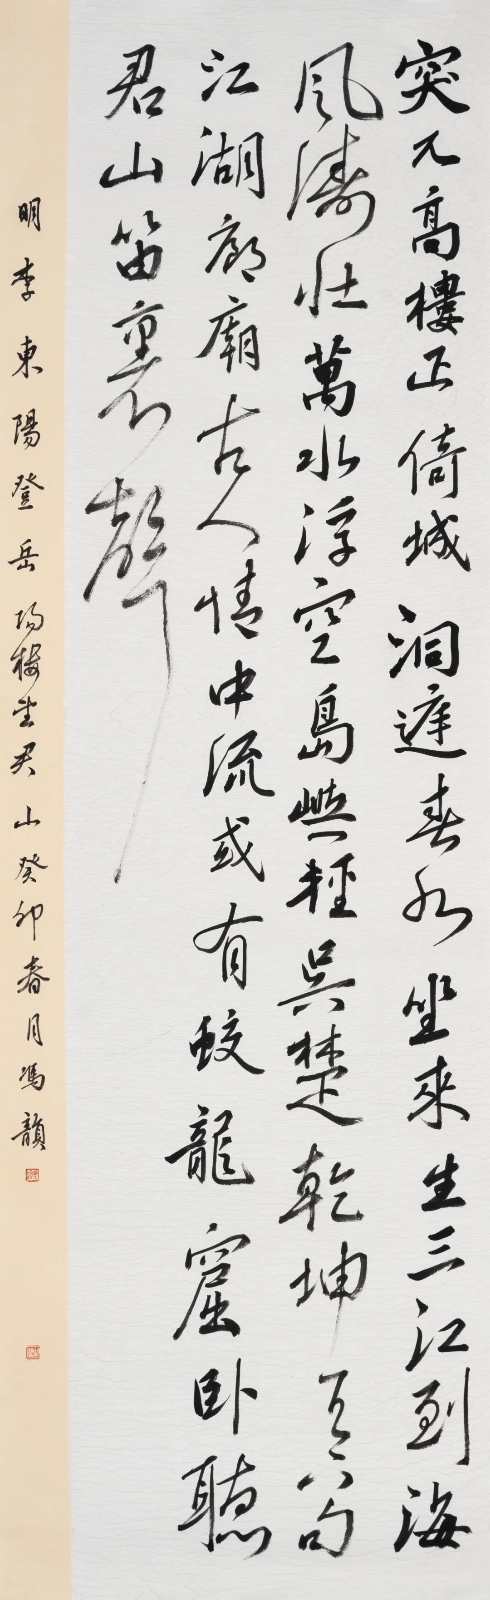 突兀高樓正倚城洞庭春水坐來生三江到海
风濤壮萬水浮空島嶼輕吳楚乾坤天下句
江湖廊廟古人情中流或有蛟龍窟卧聽
君山笛裏聲
明李東陽登岳陽樓望君山癸卯春月馮韻